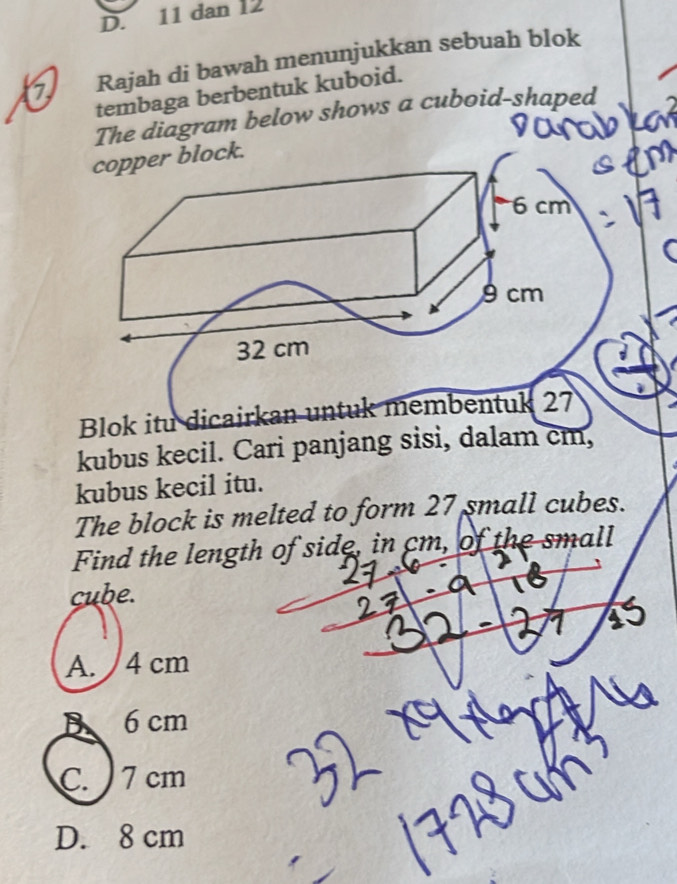 D. 11 dan 12
7. Rajah di bawah menunjukkan sebuah blok
tembaga berbentuk kuboid.
The diagram below shows a cuboid-shaped
copper block.
6 cm
= 17
9 cm
32 cm
Blok itu dicairkan untuk membentuk 27
kubus kecil. Cari panjang sisi, dalam cm,
kubus kecil itu.
The block is melted to form 27 small cubes.
Find the length of side, in cm, of the small
cube.
27 - 6 = 21
27 - 9 18
32 - 27 25
A. 4 cm
B. 6 cm
C. 7 cm
D. 8 cm
32 x 9 x
= 1728 cm³